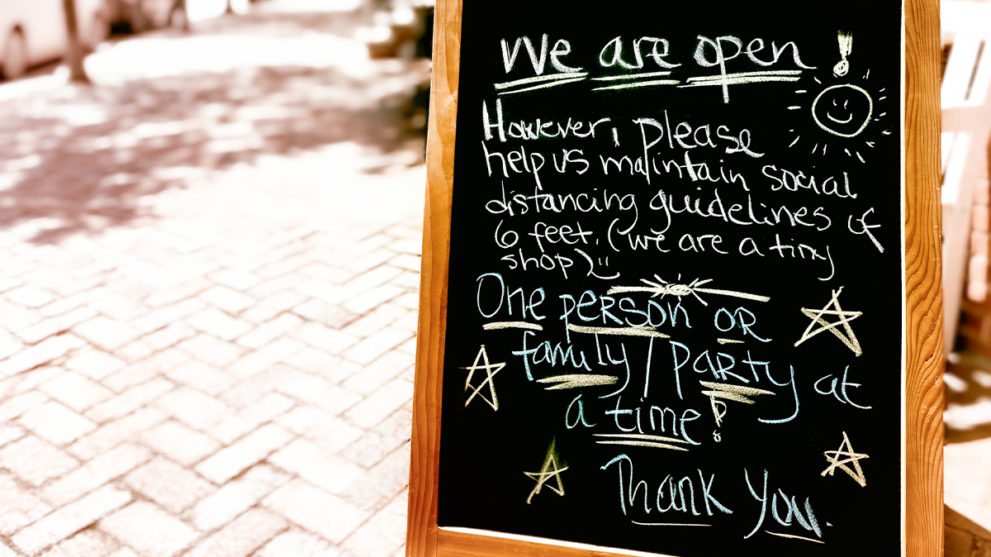 We are open!
However, please
help us maintain social
distancing guidelines of
6 feet. (we are a tiny
shop)
One person or
family/party at
a time!
Thank You.